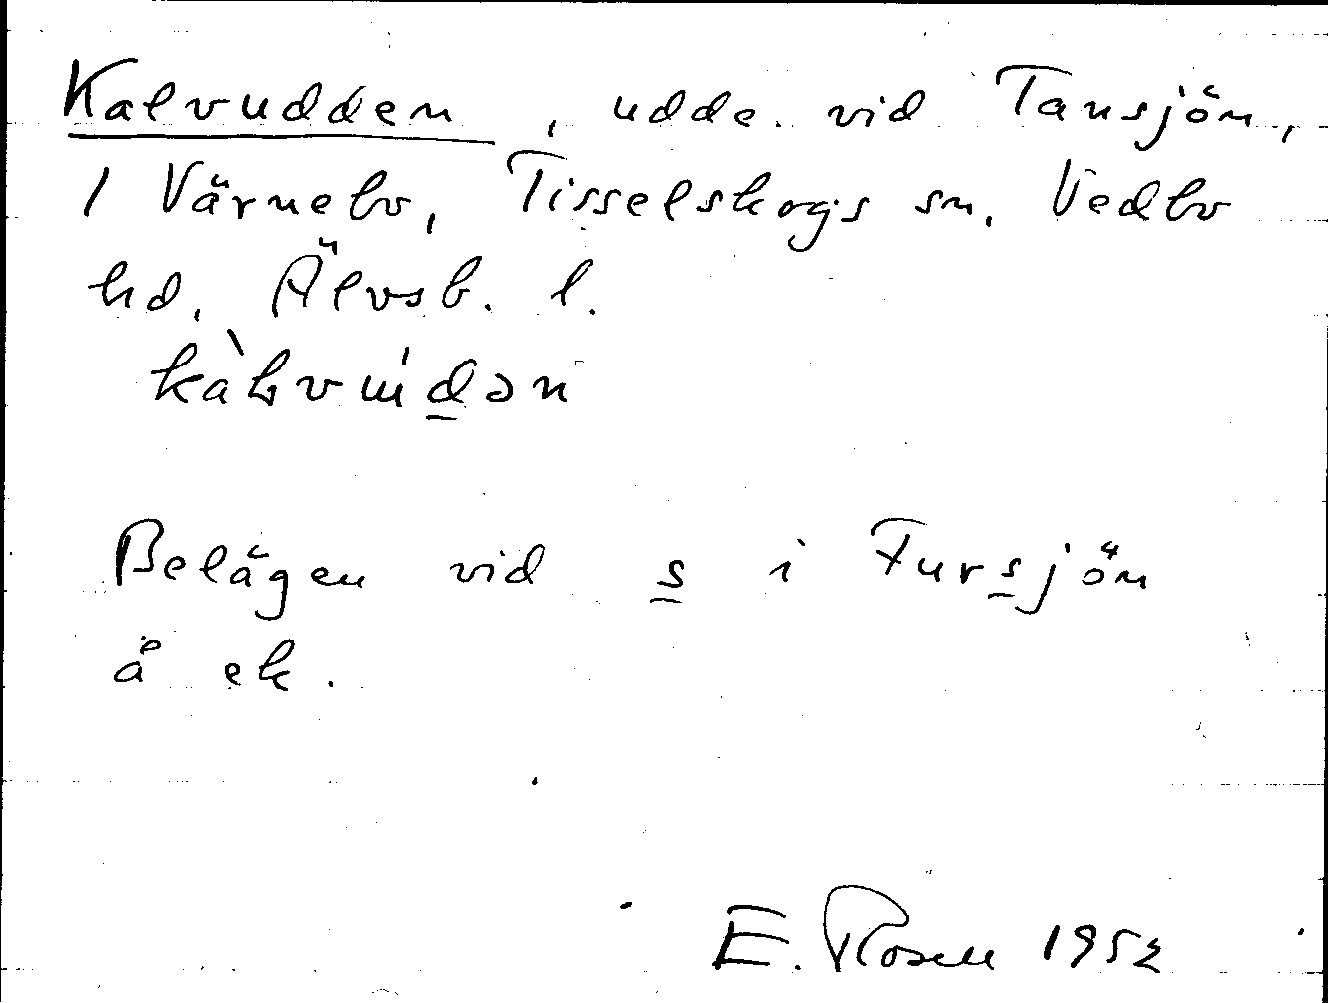 Kalvudden, udde vid Tansjön,
1 Värnebo, Tisselskogs sn. Vedbo
hd, Älvsb. l.
Belägen vid s i Fursjön
å ek.
E. Rosell 1952